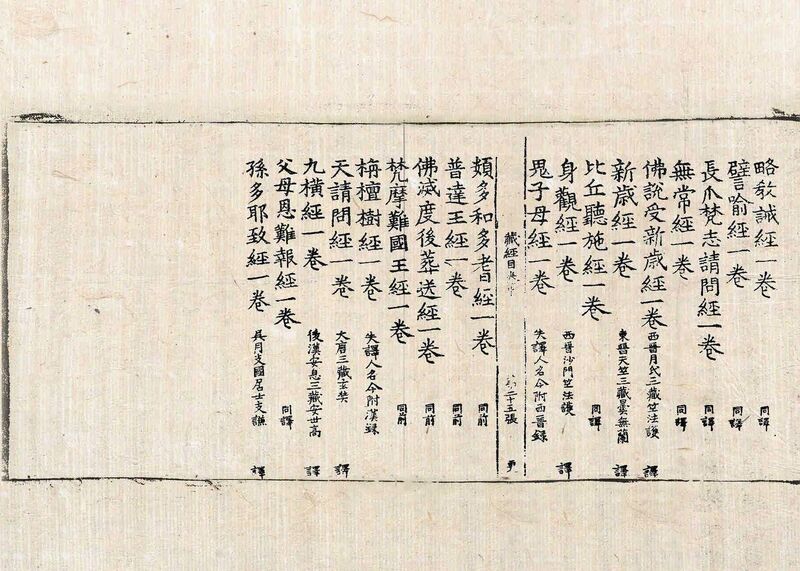 略教誡經一卷 同譯
譬喻經一卷 同譯
長爪梵志請問經一卷 同譯
無常經一卷 同譯
佛說受新歲經一卷 西晉月氏三藏竺法護 譯
新歲經一卷 東晉天竺三藏曇無蘭 譯
比丘聽施經一卷 同譯
身觀經一卷 西晉沙門竺法護 譯
鬼子母經一卷 失譯人名今附西晉錄
藏經目 二十五張
頞多和多耆經一卷 同前
普達王經一卷 同前
佛滅度後葬送經一卷 同前
梵摩難國王經一卷 同前
栴檀樹經一卷 失譯人名今附漢錄
天請問經一卷 大唐三藏玄奘 譯
九橫經一卷 後漢安息三藏安世高 譯
父母恩難報經一卷 同譯
孫多耶致經一卷 吳月支國居士支謙 譯